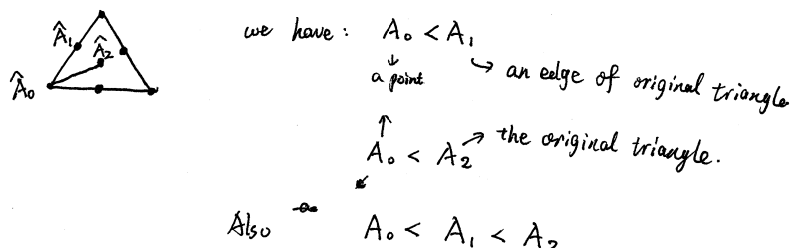 Â₁
Â₂
Â₀
we have: A₀ < A₁
↓
a point
↪ an edge of original triangle
↑
A₀ < A₂ → the original triangle.
Also A₀ < A₁ < A₂